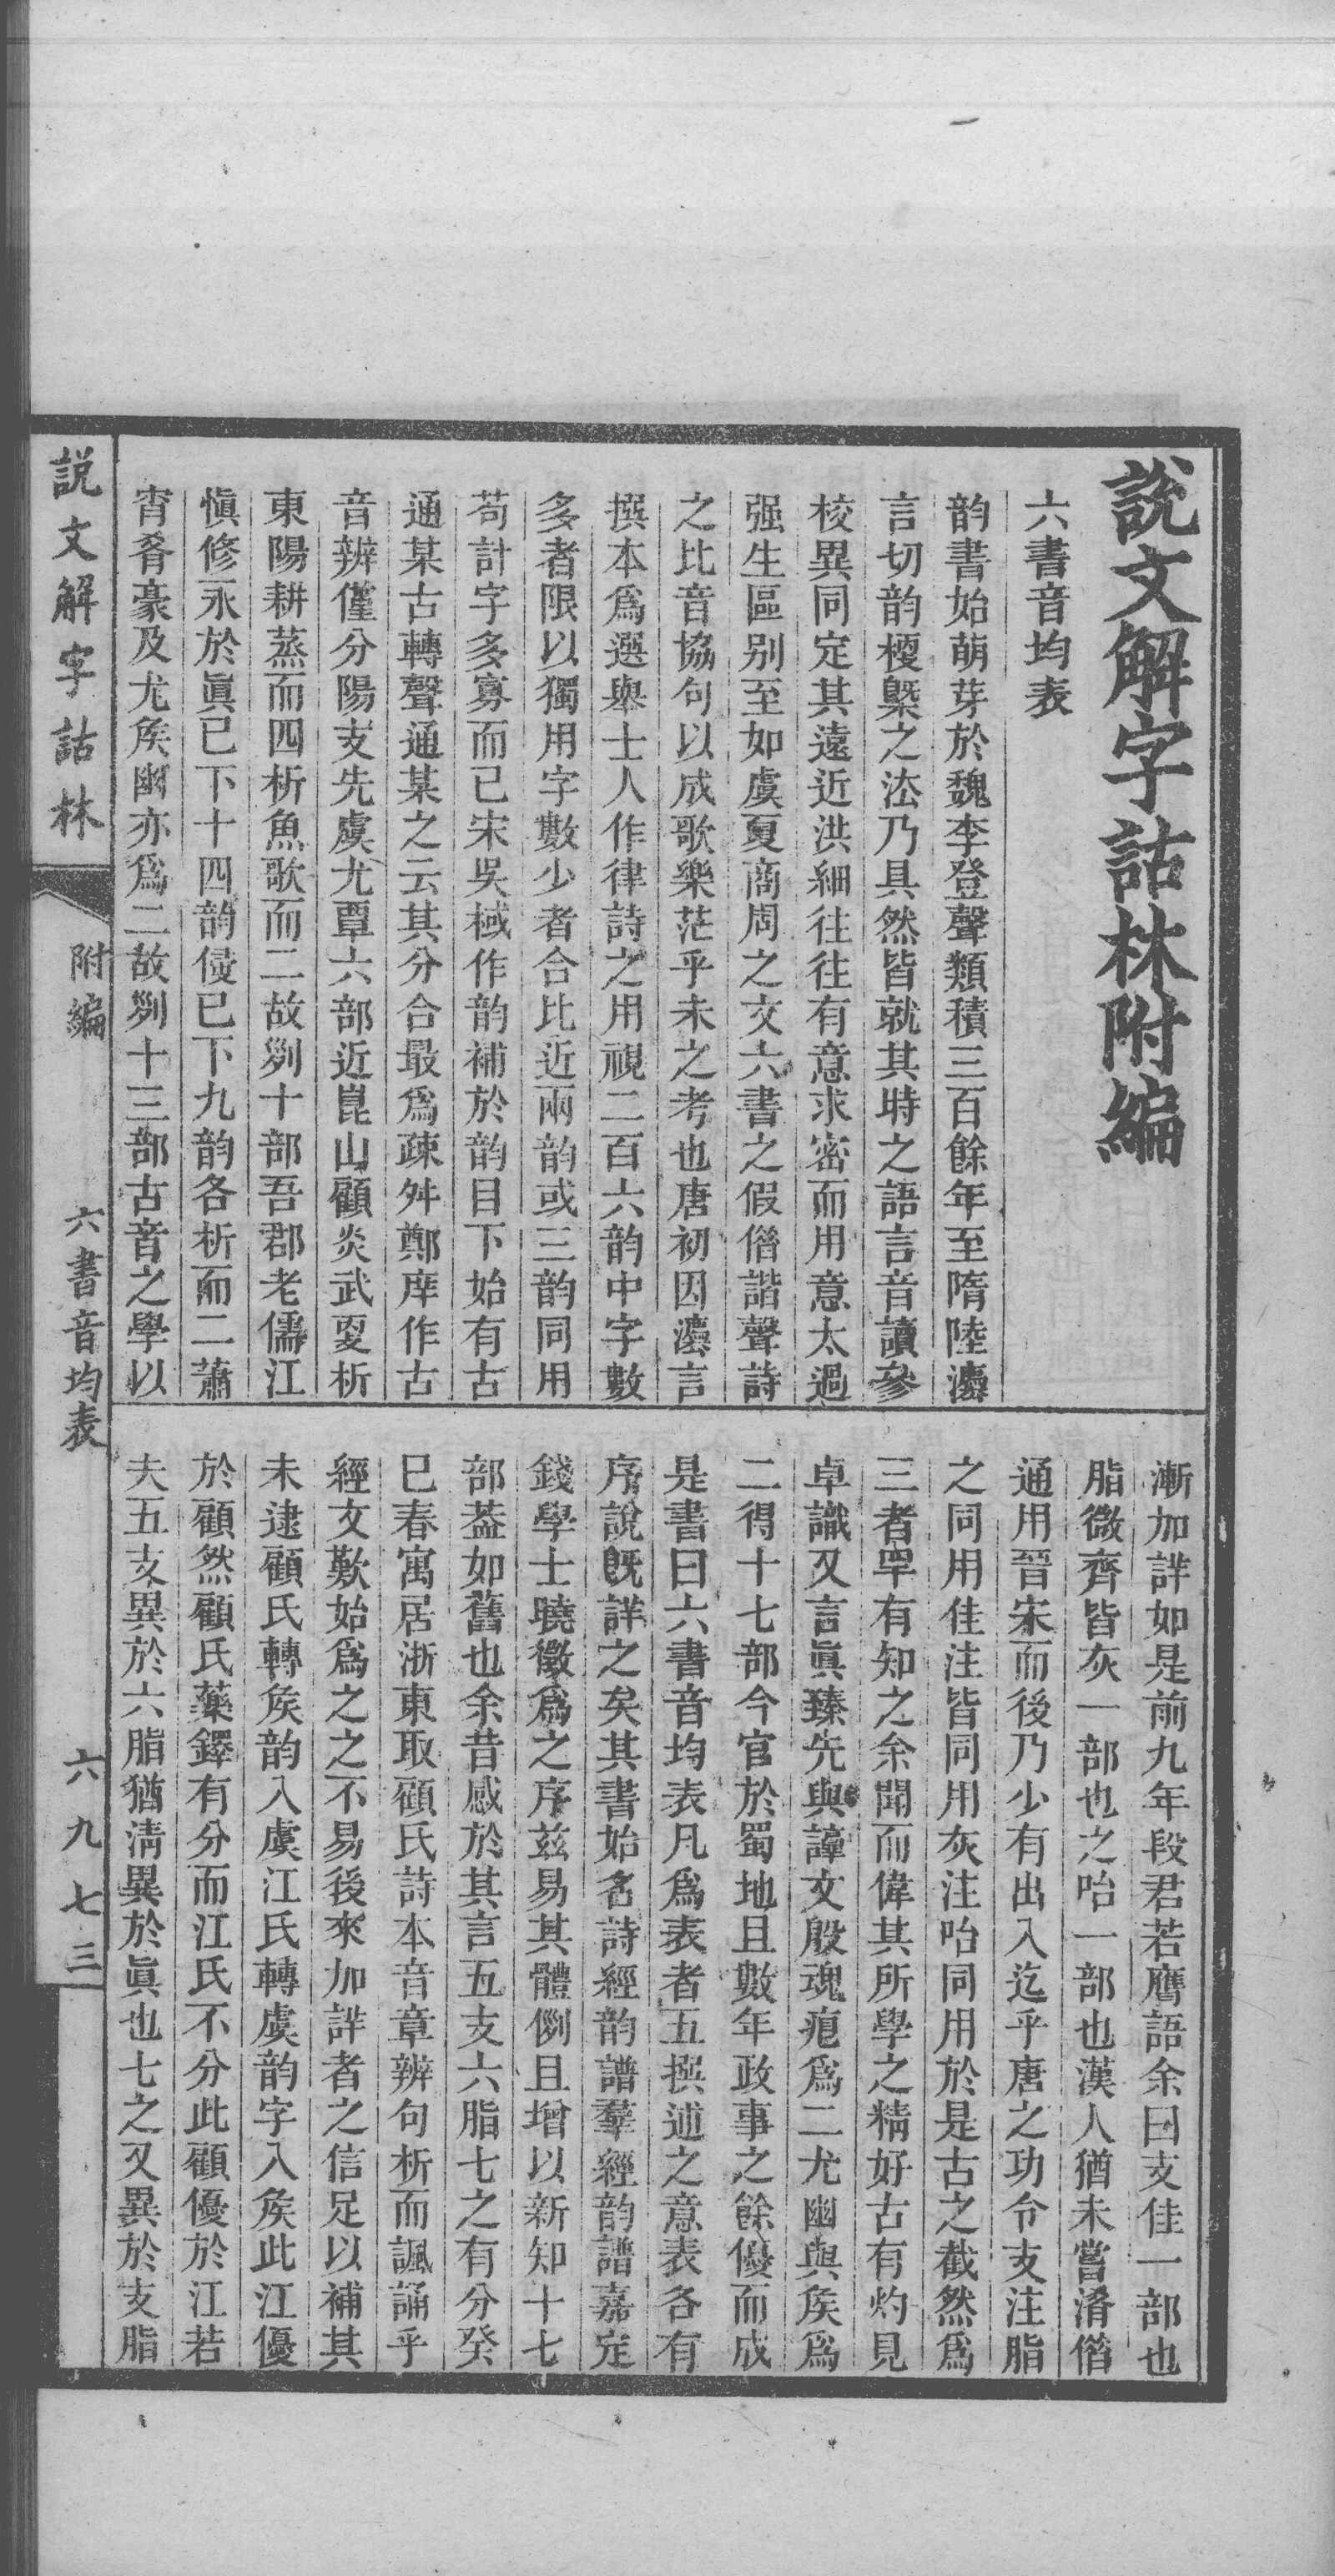 說文解字詁林附編
六書音均表
韵書始萌芽於魏李登聲類積三百餘年至隋陸灋
言切韵梗槩之法乃具然皆就其時之語言音讀參
校異同定其遠近洪細往往有意求密而用意太過
强生區别至如虞夏商周之文六書之假借諧聲詩
之比音協句以成歌樂茫乎未之考也唐初因灋言
撰本爲選舉士人作律詩之用視二百六韵中字數
多者限以獨用字數少者合比近兩韵或三韵同用
苟計字多寡而已宋吳棫作韵補於韵目下始有古
通某古轉聲通某之云其分合最爲疎舛鄭庠作古
音辨僅分陽支先虞尤覃六部近崑山顧炎武㪅析
東陽耕蒸而四析魚歌而二故列十部吾郡老儒江
愼修永於眞已下十四韵侵已下九韵各析而二蕭
宵肴豪及尤矦幽亦爲二故列十三部古音之學以
漸加詳如是前九年段君若膺語余曰支佳一部也
脂微齊皆灰一部也之咍一部也漢人猶未嘗淆借
通用晉宋而後乃少有出入迄乎唐之功令支注脂
之同用佳注皆同用灰注咍同用於是古之截然爲
三者罕有知之余聞而偉其所學之精好古有灼見
卓識又言眞臻先與諄文殷魂痕爲二尤幽與矦爲
二得十七部今官於蜀地且數年政事之餘優而成
是書曰六書音均表凡爲表者五撰述之意表各有
序說既詳之矣其書始名詩經韵譜羣經韵譜嘉定
錢學士曉徵爲之序兹易其體例且增以新知十七
部葢如舊也余昔感於其言五支六脂七之有分癸
巳春寓居浙東取顧氏詩本音章辨句析而諷誦乎
經文歎始爲之之不易後來加詳者之信足以補其
未逮顧氏轉矦韵入虞江氏轉虞韵字入矦此江優
於顧然顧氏藥鐸有分而江氏不分此顧優於江若
夫五支異於六脂猶淸異於眞也七之又異於支脂
説文解字詁林
附編
六書音均表
六九七三